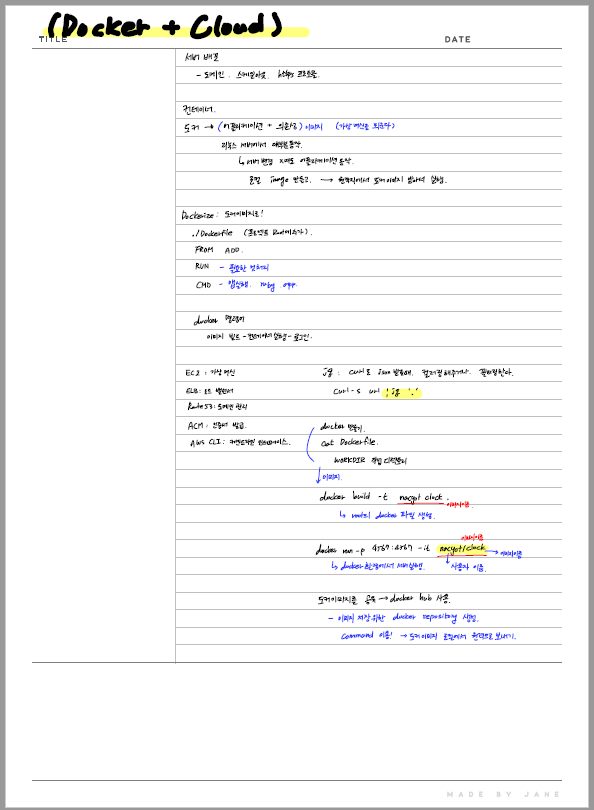 (Docker + Cloud)
TITLE
DATE
서버 배포
- 도메인, 스케일아웃, https 프로토콜.
컨테이너.
도커 → (어플리케이션 + 의존성) 이미지 (가상 머신을 되유다)
리눅스 서버에서
↳ 서버 환경 어플리케이션 동작.
로컬 image 만들고. → 원격지에서 도커이미지 받아서 실행.
Dockerize : 도커이미지로!
./Dockerfile (프로젝트 Root에 추가).
FROM ADD.
RUN - 필요한 전처리
CMD - 앱실행. ruby app.
docker 명령어
이미지 빌드 - 컨테이너 실행 - 로그인.
EC2 : 가상 머신
ELB: 로드 밸런서
Route53: 도메인 관리
ACM : 인증서 발급.
AWS CLI : 커맨드라인 인터페이스.
jq : curl로 json 컬러링해주거나 필터링한다.
curl -s url | jq '.'
docker 만들기.
cat Dockerfile.
WORKDIR 작업 디렉토리
↓ 이미지.
docker build -t nacyot/clock .
이미지이름.
↳ docker 파일 생성.
이미지이름
docker run -p 4567:4567 -it nacyot/clock → 이미지이름
↳ docker 환경에서 서버실행. 사용자 이름.
도커이미지를 공유 → docker hub 사용.
- 이미지 저장 위한 docker repository 생성.
command 이용! → 도커이미지 로컬에서 원격으로 보내기.
MADE BY JANE